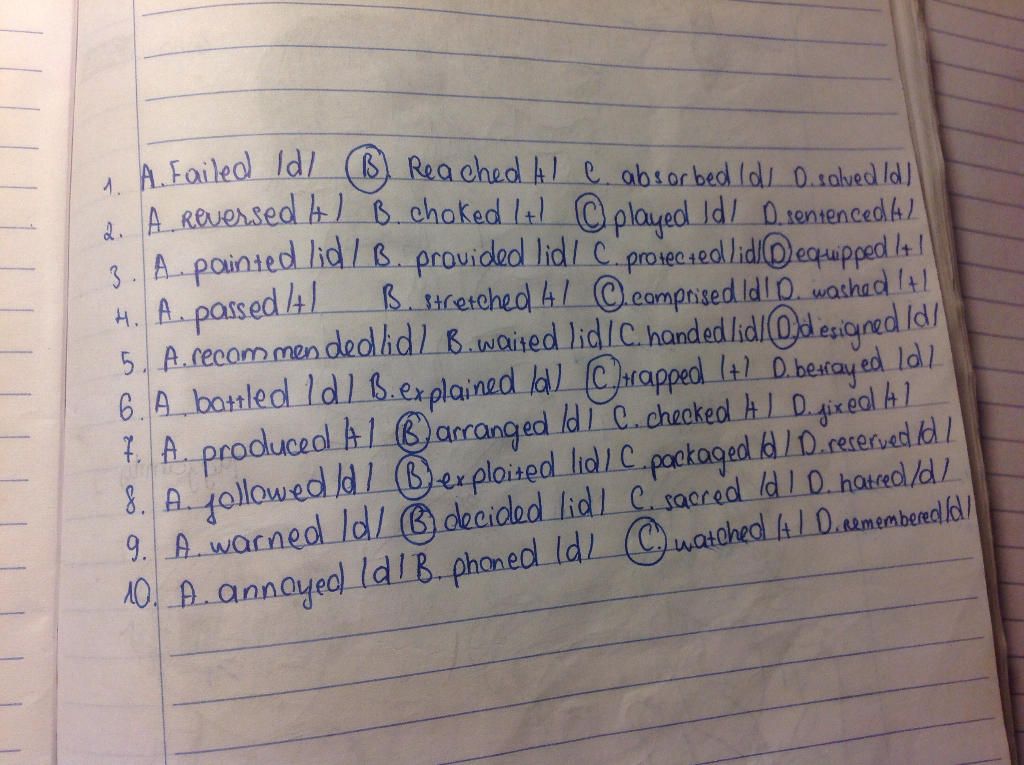 1. A. Failed /d/ B Reached /t/ C. absorbed /d/ D. solved /d/
2. A. reversed /t/ B. choked /t/ C played /d/ D. sentenced /t/
3. A. painted /id/ B. provided /id/ C. protected /id/ D equipped /t/
4. A. passed /t/ B. stretched /t/ C comprised /d/ D. washed /t/
5. A. recommended /id/ B. waited /id/ C. handed /id/ D designed /d/
6. A. battled /d/ B. explained /d/ C trapped /t/ D. betrayed /d/
7. A. produced /t/ B arranged /d/ C. checked /t/ D. fixed /t/
8. A. followed /d/ B exploited /id/ C. packaged /d/ D. reserved /d/
9. A. warned /d/ B decided /id/ C. sacred /d/ D. hatred /d/
10. A. annoyed /d/ B. phoned /d/ C watched /t/ D. remembered /d/